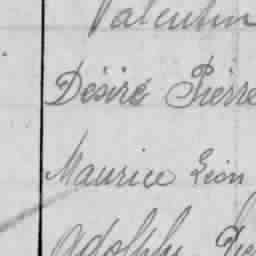 Valentin
Désiré Pierre
Maurice Léon
Adolphe Pie